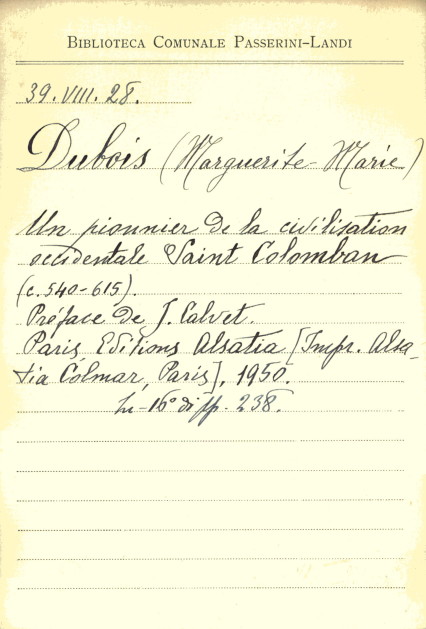 BIBLIOTECA COMUNALE PASSERINI-LANDI
39. VIII. 28.
Dubois (Marguerite-Marie)
Un pionnier de la civilisation
occidentale Saint Colomban
(c. 540-615).
Préface de J. Calvet.
Paris, Editions Alsatia [Impr. Alsa-
tia Colmar, Paris], 1950.
In-16° di pp. 238.